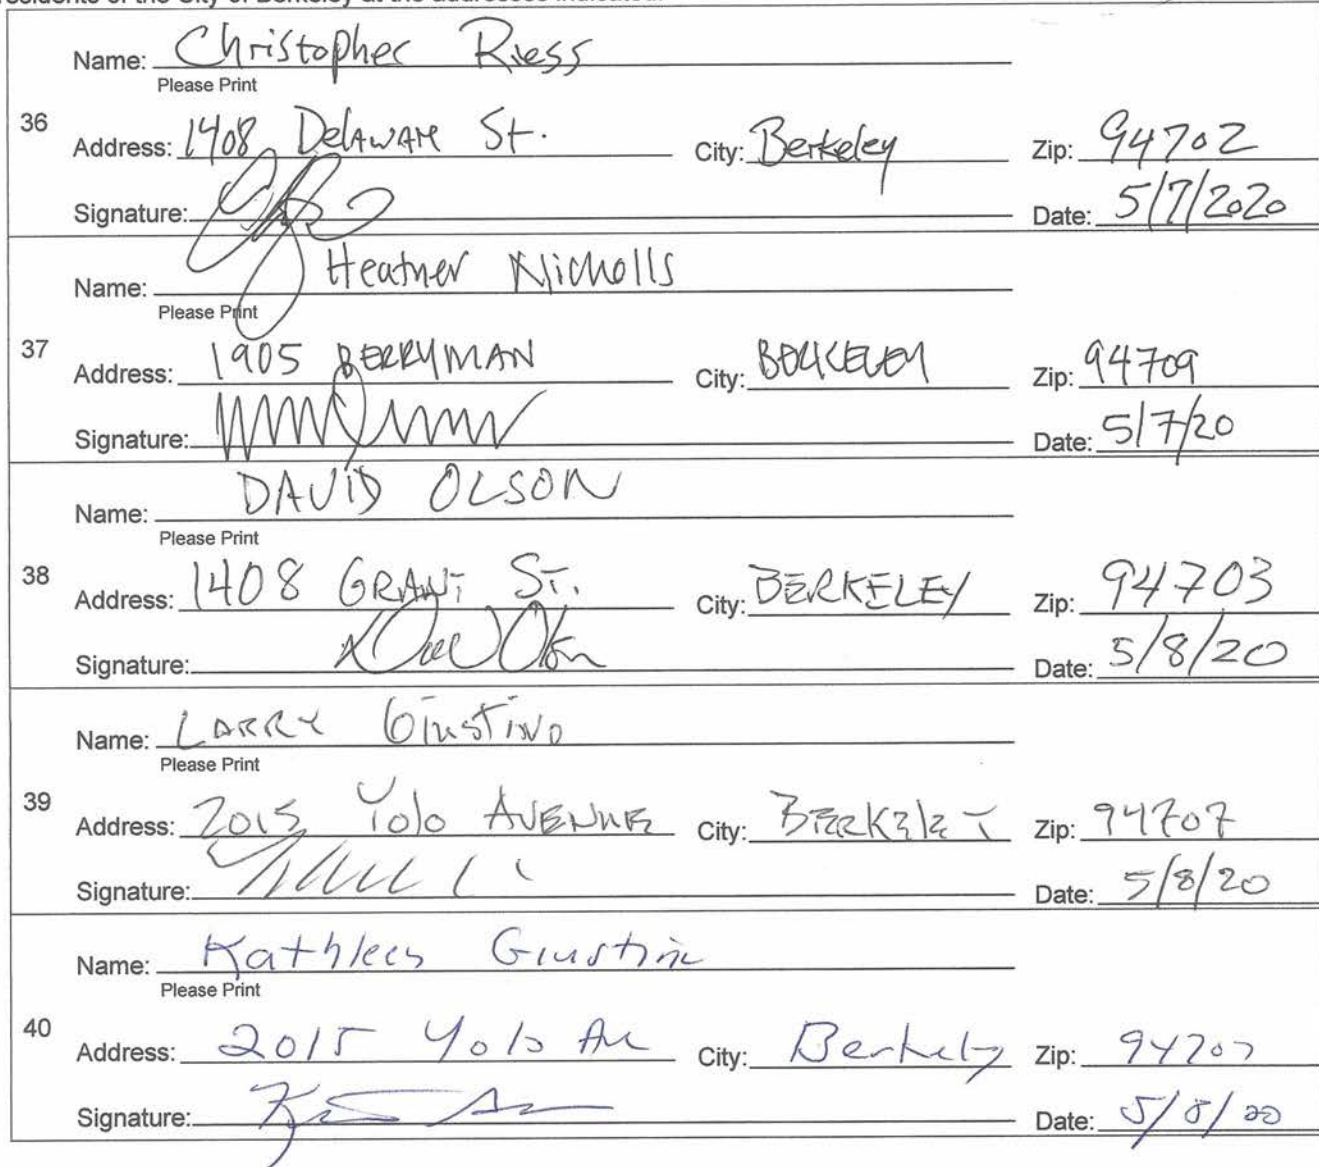 residents of the City of Berkeley at the addresses indicated.
Name: Christopher Riess
Please Print
36
Address: 1408 Delaware St. City: Berkeley Zip: 94702
Signature: Date: 5/7/2020
Name: Heather Nicholls
Please Print
37
Address: 1905 BERRYMAN City: BERKELEY Zip: 94709
Signature: Date: 5/7/20
Name: DAVID OLSON
Please Print
38
Address: 1408 GRANT ST. City: BERKELEY Zip: 94703
Signature: Date: 5/8/20
Name: LARRY GIUSTINO
Please Print
39
Address: 2015 Yolo AVENUE City: BERKELEY Zip: 94707
Signature: Date: 5/8/20
Name: Kathleen Giustino
Please Print
40
Address: 2015 Yolo Ave City: Berkeley Zip: 94707
Signature: Date: 5/8/20